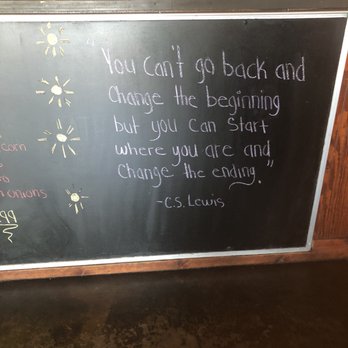 You can't go back and
change the beginning
but you can start
where you are and
change the ending."
-C.S. Lewis
corn
onions
99